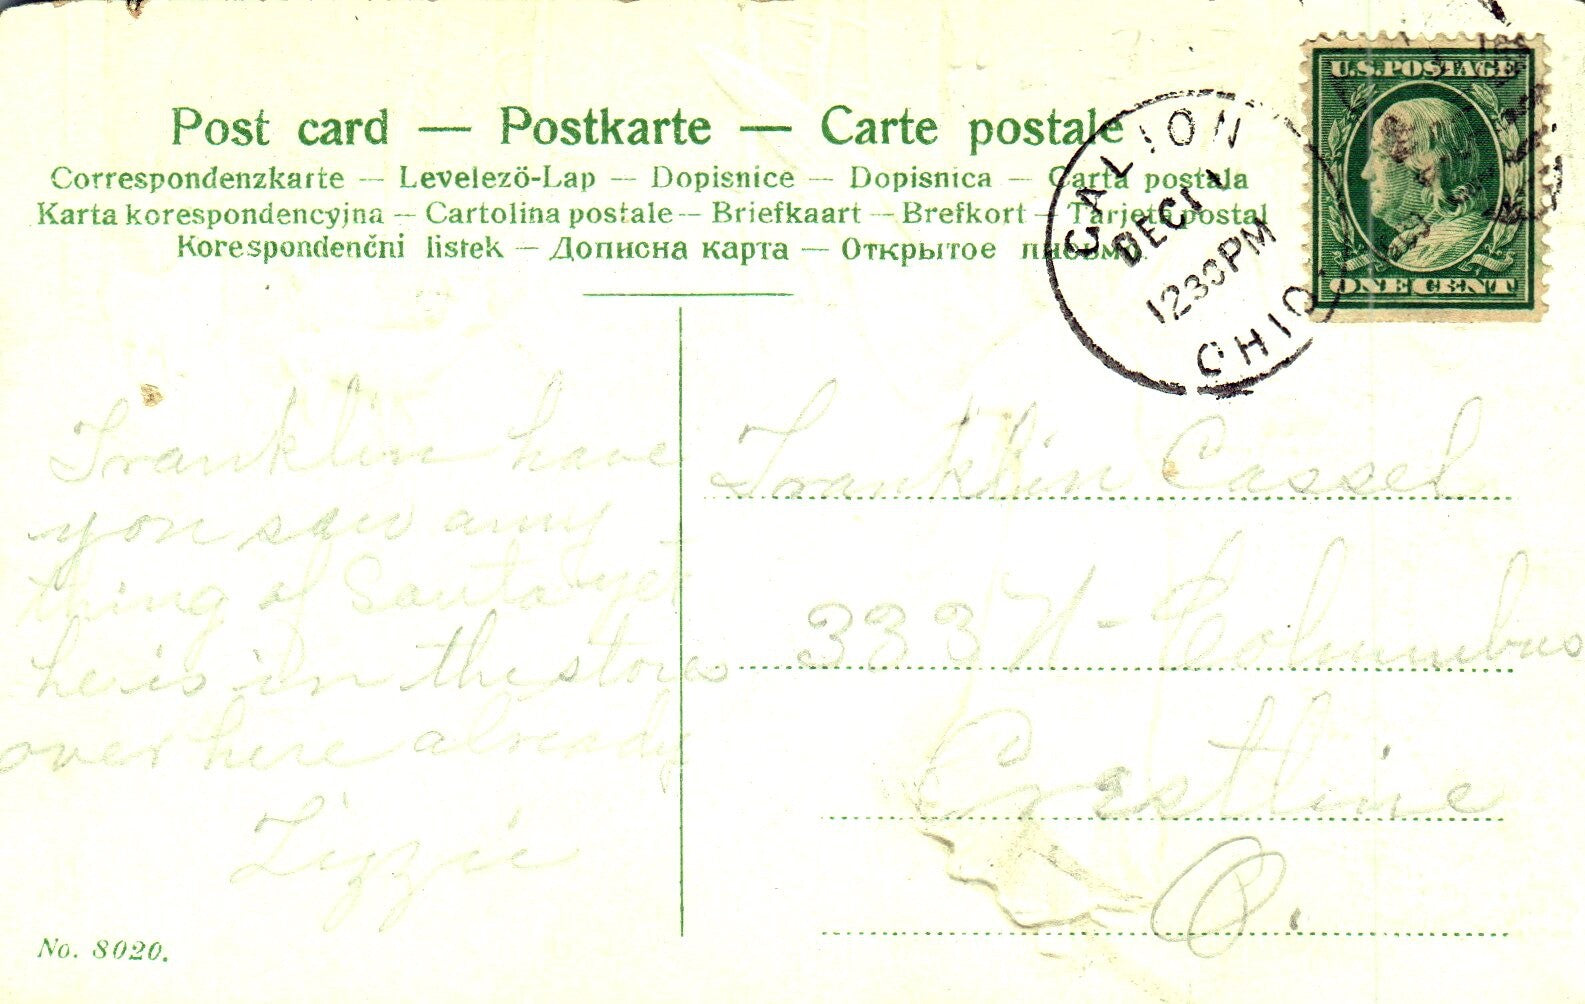 Post card — Postkarte — Carte postale
Correspondenzkarte — Levelező-Lap — Dopisnice — Dopisnica — Carta postala
Karta korespondencyjna — Cartolina postale — Briefkaart — Brefkort — Tarjeta postal
Korespondenčni listek — Дописна карта — Открытое письмо
U.S.POSTAGE
ONE CENT
GALION
DEC 11
1230PM
OHIO
Franklin have
you saw any
thing of Santa yet
he is in the stores
over here already
Lizzie
Franklin Cassel
333 N- Columbus
Crestline
O.
No. 8020.